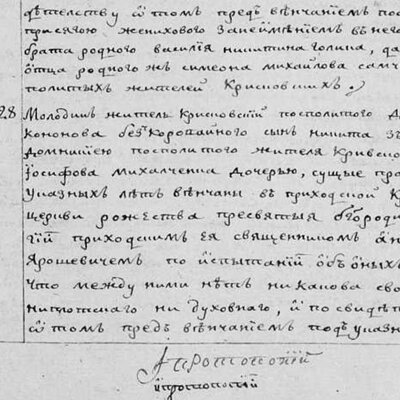 дѣтелству ѿ томъ предъ вѣнчаниемъ по
присягою женихового занеимѣниемъ в него
брата родного василия никитина голика, да
ѿтца родного жъ симеона михайлова сам
политыхъ жителей Крисновскихъ
28 Молодикъ житель крисновский посполитого
кононова безкоровайного сынъ никита
домникиею посполитого жителя
Иосифова михалченка дочерью, сущые
указныхъ лѣтъ вѣнчаны въ приходской
церкви рожества пресвятыя бгороди
приходскимъ ея священникомъ
Ярошевичемъ по испытаний объ оныхъ
что между ними нѣтъ никакова
ни плотскаго ни духовнаго, и по свидѣ
ѿ томъ предъ вѣнчаниемъ подъ указн
Протопопий
протопопий